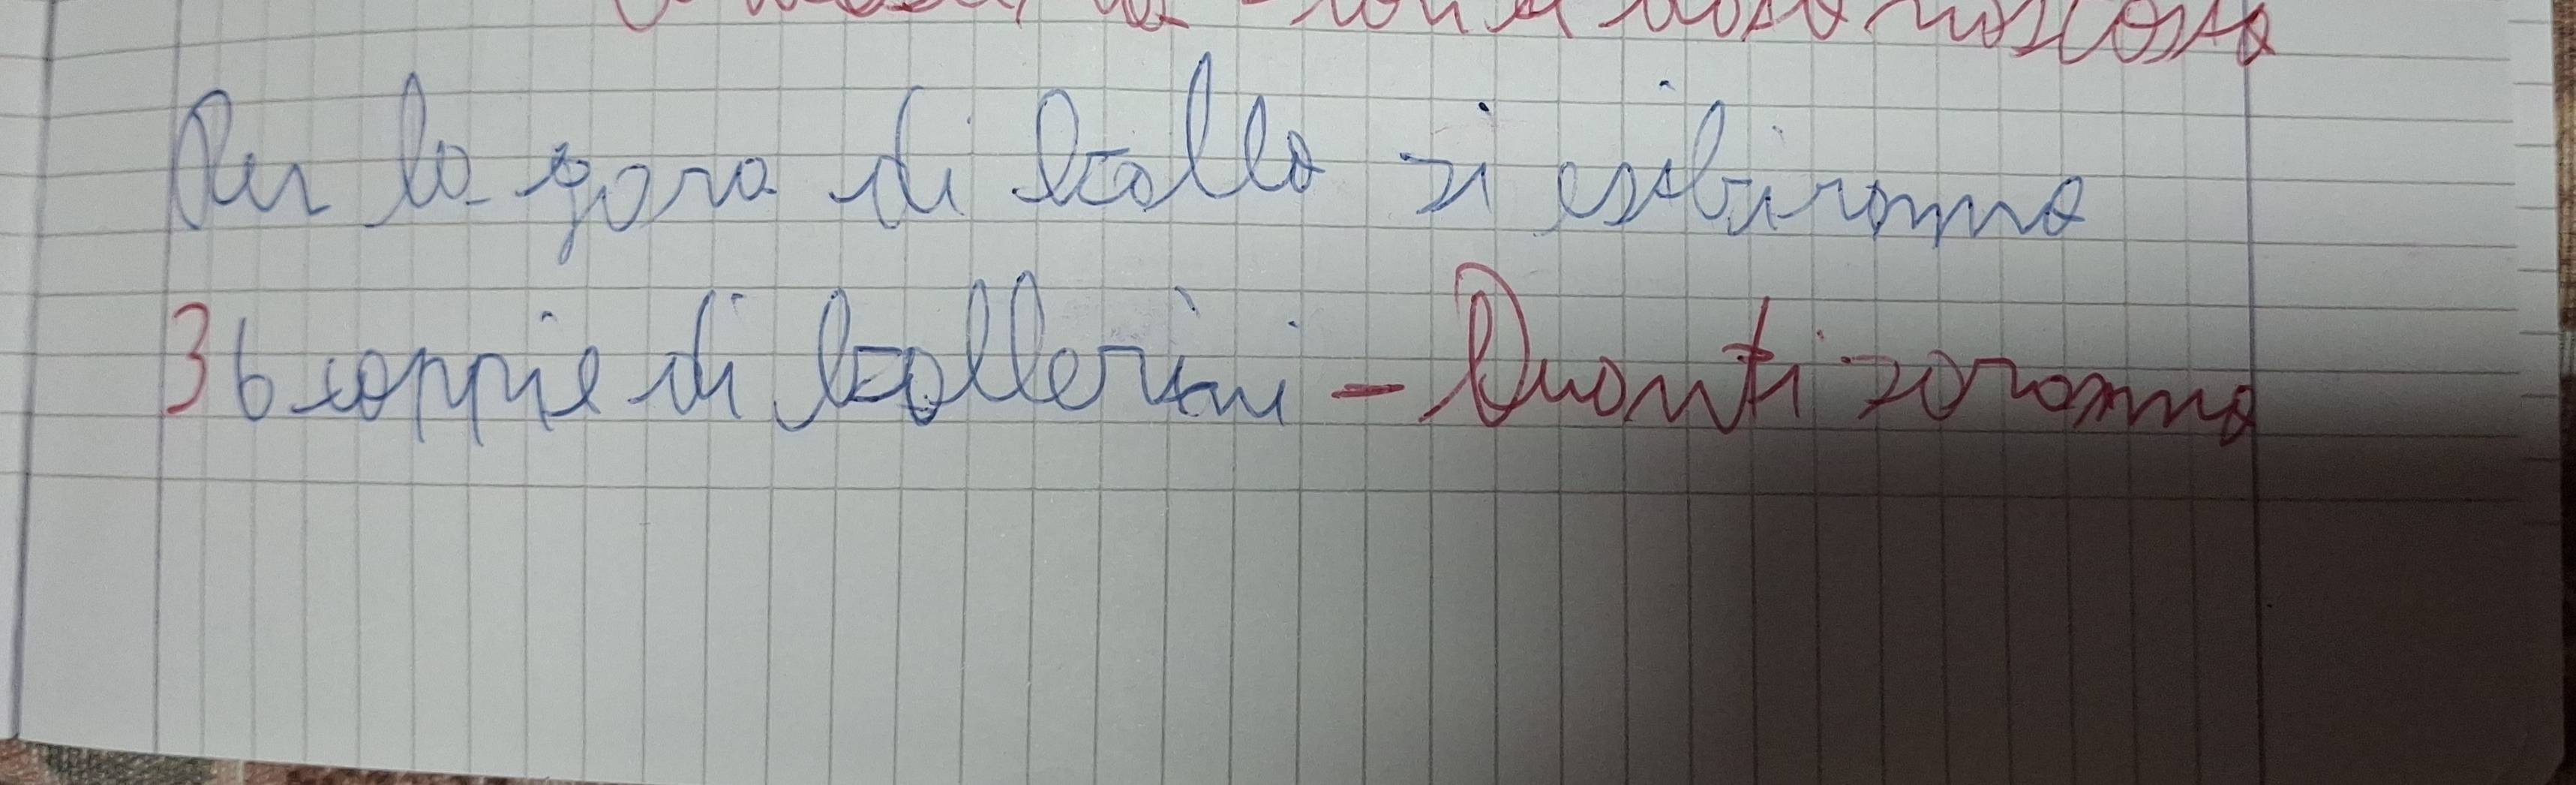 Per la gara di ballo si esibiranno
36 coppie di ballerini - Quanti saranno